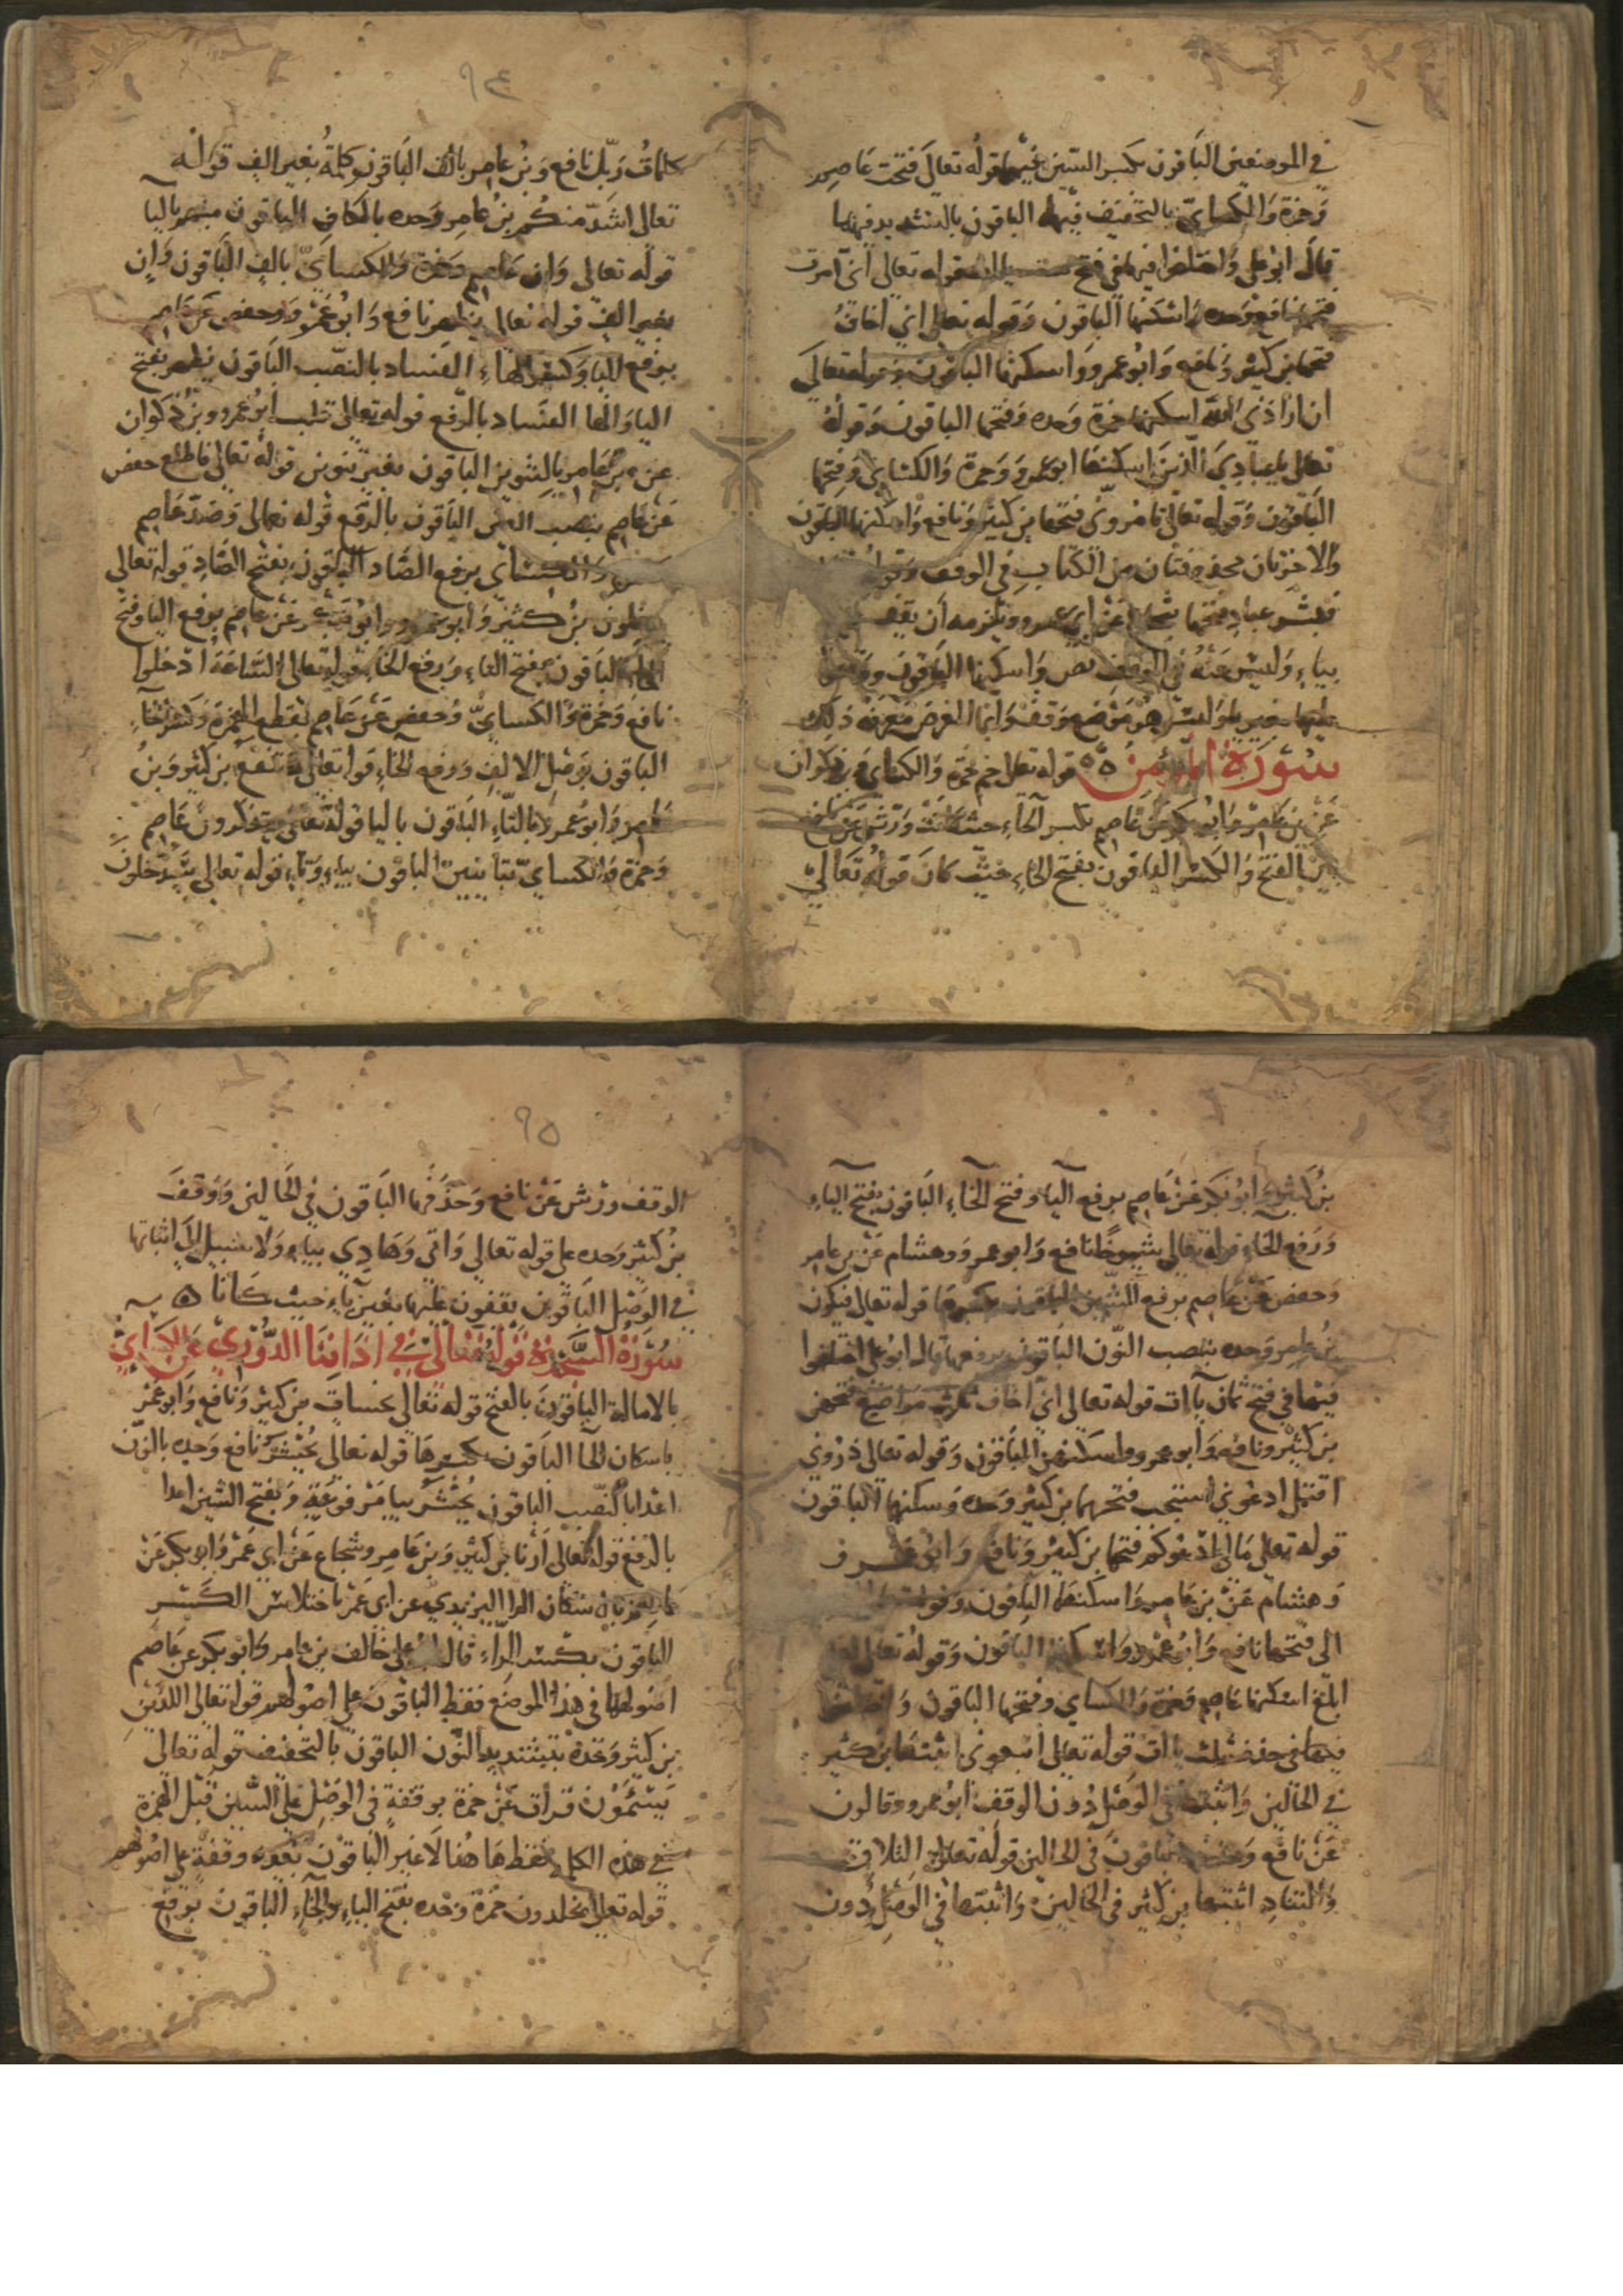 في الموضعين الباقون بكسر السين فيهما قوله تعالى فتحت عاصم
وحمزة والكسائي بالتخفيف فيهما الباقون بالتشديد فيهما
قال ابو علي واختلفوا فيها في فتح قوله تعالى اني امرت
فتحها نافع وحده واسكنها الباقون وقوله تعالى اني اخاف
فتحها بن كثير ونافع وابو عمرو واسكنها الباقون وقوله تعالى
ان ارادني الله اسكنها حمزة وحده وفتحها الباقون وقوله
تعالى يا عبادي الذين اسكنها ابو عمرو وحمزة والكسائي وفتحها
الباقون وقوله تعالى تامروني فتحها بن كثير ونافع واسكنها الباقون
والاخرتان محذوفتان من الكتاب في الوقف
فبشر عباد فتحها شجاع عن ابي عمرو ويلزمه ان يقف
بياء وليس عنه في الوقف نص واسكنها الباقون
عليها بغير ياء وليس هو موضع وقف وانما الغرض معرفة ذلك
سورة المؤمن قوله تعالى حم حمزة والكسائي وبن ذكوان
عن بن عامر وابو بكر عن عاصم بكسر الحاء حيث كانت وورش عن نافع
بين الفتح والكسر الباقون بفتح الحاء حيث كان قوله تعالى
٩٤
كلمات ربك نافع وبن عامر بالف الباقون كلمة بغير الف قوله
تعالى اشد منكم بن عامر وحده بالكاف الباقون منهم باليا
قوله تعالى وان عاصم وحمزة والكسائي بالف الباقون وان
بغير الف قوله تعالى يظهر نافع وابو عمرو وحفص عن عاصم
برفع اليا وكسر الهاء الفساد بالنصب الباقون يظهر بفتح
اليا والها الفساد بالرفع قوله تعالى قلب ابو عمرو وبن ذكوان
عن بن عامر بالتنوين الباقون بغير تنوين قوله تعالى فاطلع حفص
عن عاصم بنصب العين الباقون بالرفع قوله تعالى وصد عاصم
والكسائي برفع الصاد الباقون بفتح الصاد قوله تعالى
يدخلون بن كثير وابو عمرو وابو بكر عن عاصم برفع اليا وفتح
الخاء الباقون بفتح الياء ورفع الخاء قوله تعالى الساعة ادخلوا
نافع وحمزة والكسائي وحفص عن عاصم بقطع الهمزة وكسر الخاء
الباقون بوصل الالف ورفع الخاء قوله تعالى تنفع بن كثير وبن
عامر وابو عمرو بالتاء الباقون باليا قوله تعالى تتذكرون عاصم
وحمزة والكسائي بتائين الباقون بياء وتاء قوله تعالى سيدخلون
بن كثير وابو بكر عن عاصم برفع اليا وفتح الخاء الباقون بفتح الياء
ورفع الخاء قوله تعالى شيوخا نافع وابو عمرو وهشام عن بن عامر
وحفص عن عاصم برفع الشين الباقون بكسرها قوله تعالى فيكون
بن عامر وحده بنصب النون الباقون برفعها قال ابو علي اختلفوا
فيها في فتح ثمان ياات قوله تعالى اني اخاف ثلاث مواضع فتحهن
بن كثير ونافع وابو عمرو واسكنهن الباقون وقوله تعالى ذروني
اقتل ادعوني استجب فتحهما بن كثير وحده وسكنها الباقون
قوله تعالى مالي ادعوكم فتحها بن كثير ونافع وابو عمرو
وهشام عن بن عامر واسكنها الباقون وقوله
الى فتحها نافع وابو عمرو واسكنها الباقون وقوله تعالى لعلي
ابلغ اسكنها عاصم وحمزة والكسائي وفتحها الباقون واختلفوا
فيها في حذف ثلث ياات قوله تعالى اتبعوني اثبتها بن كثير
في الحالين واثبتها في الوصل دون الوقف ابو عمرو وقالون
عن نافع وحذفها الباقون في الحالين قوله تعالى التلاق
والتناد اثبتها بن كثير في الحالين واثبتها في الوصل دون
٩٥
الوقف ورش عن نافع وحذفها الباقون في الحالين ووقف
بن كثير وحده على قوله تعالى واقي وهادي بياء ولا سبيل الى اثباتها
في الوصل الباقون يقفون عليها بغير ياء حيث كانا ه
سورة السجدة قوله تعالى في اذاننا الدوري عن الكسائي
بالامالة الباقون بالفتح قوله تعالى نحسات بن كثير ونافع وابو عمرو
باسكان الحا الباقون بكسرها قوله تعالى نحشر نافع وحده بالنون
اعدا بالنصب الباقون يحشر بيا مرفوعة وبفتح الشين اعدا
بالرفع قوله تعالى ارنا بن كثير وبن عامر وشجاع عن ابي عمرو وابو بكر عن
عاصم باسكان الرا اليزيدي عن ابي عمرو باختلاس الكسر
الباقون بكسر الراء قال ابو علي خالف بن عامر وابو بكر عن عاصم
اصولهما في هذا الموضع فقط الباقون على اصولهم قوله تعالى اللذين
بن كثير وحده بتشديد النون الباقون بالتخفيف قوله تعالى
يسئمون قرات عن حمزة بوقفة في الوصل على السين قبل الهمزة
في هذه الكلمة فقط هاهنا لا غير الباقون بغير وقفة على اصولهم
قوله تعالى يلحدون حمزة وحده بفتح الياء والحاء الباقون برفع